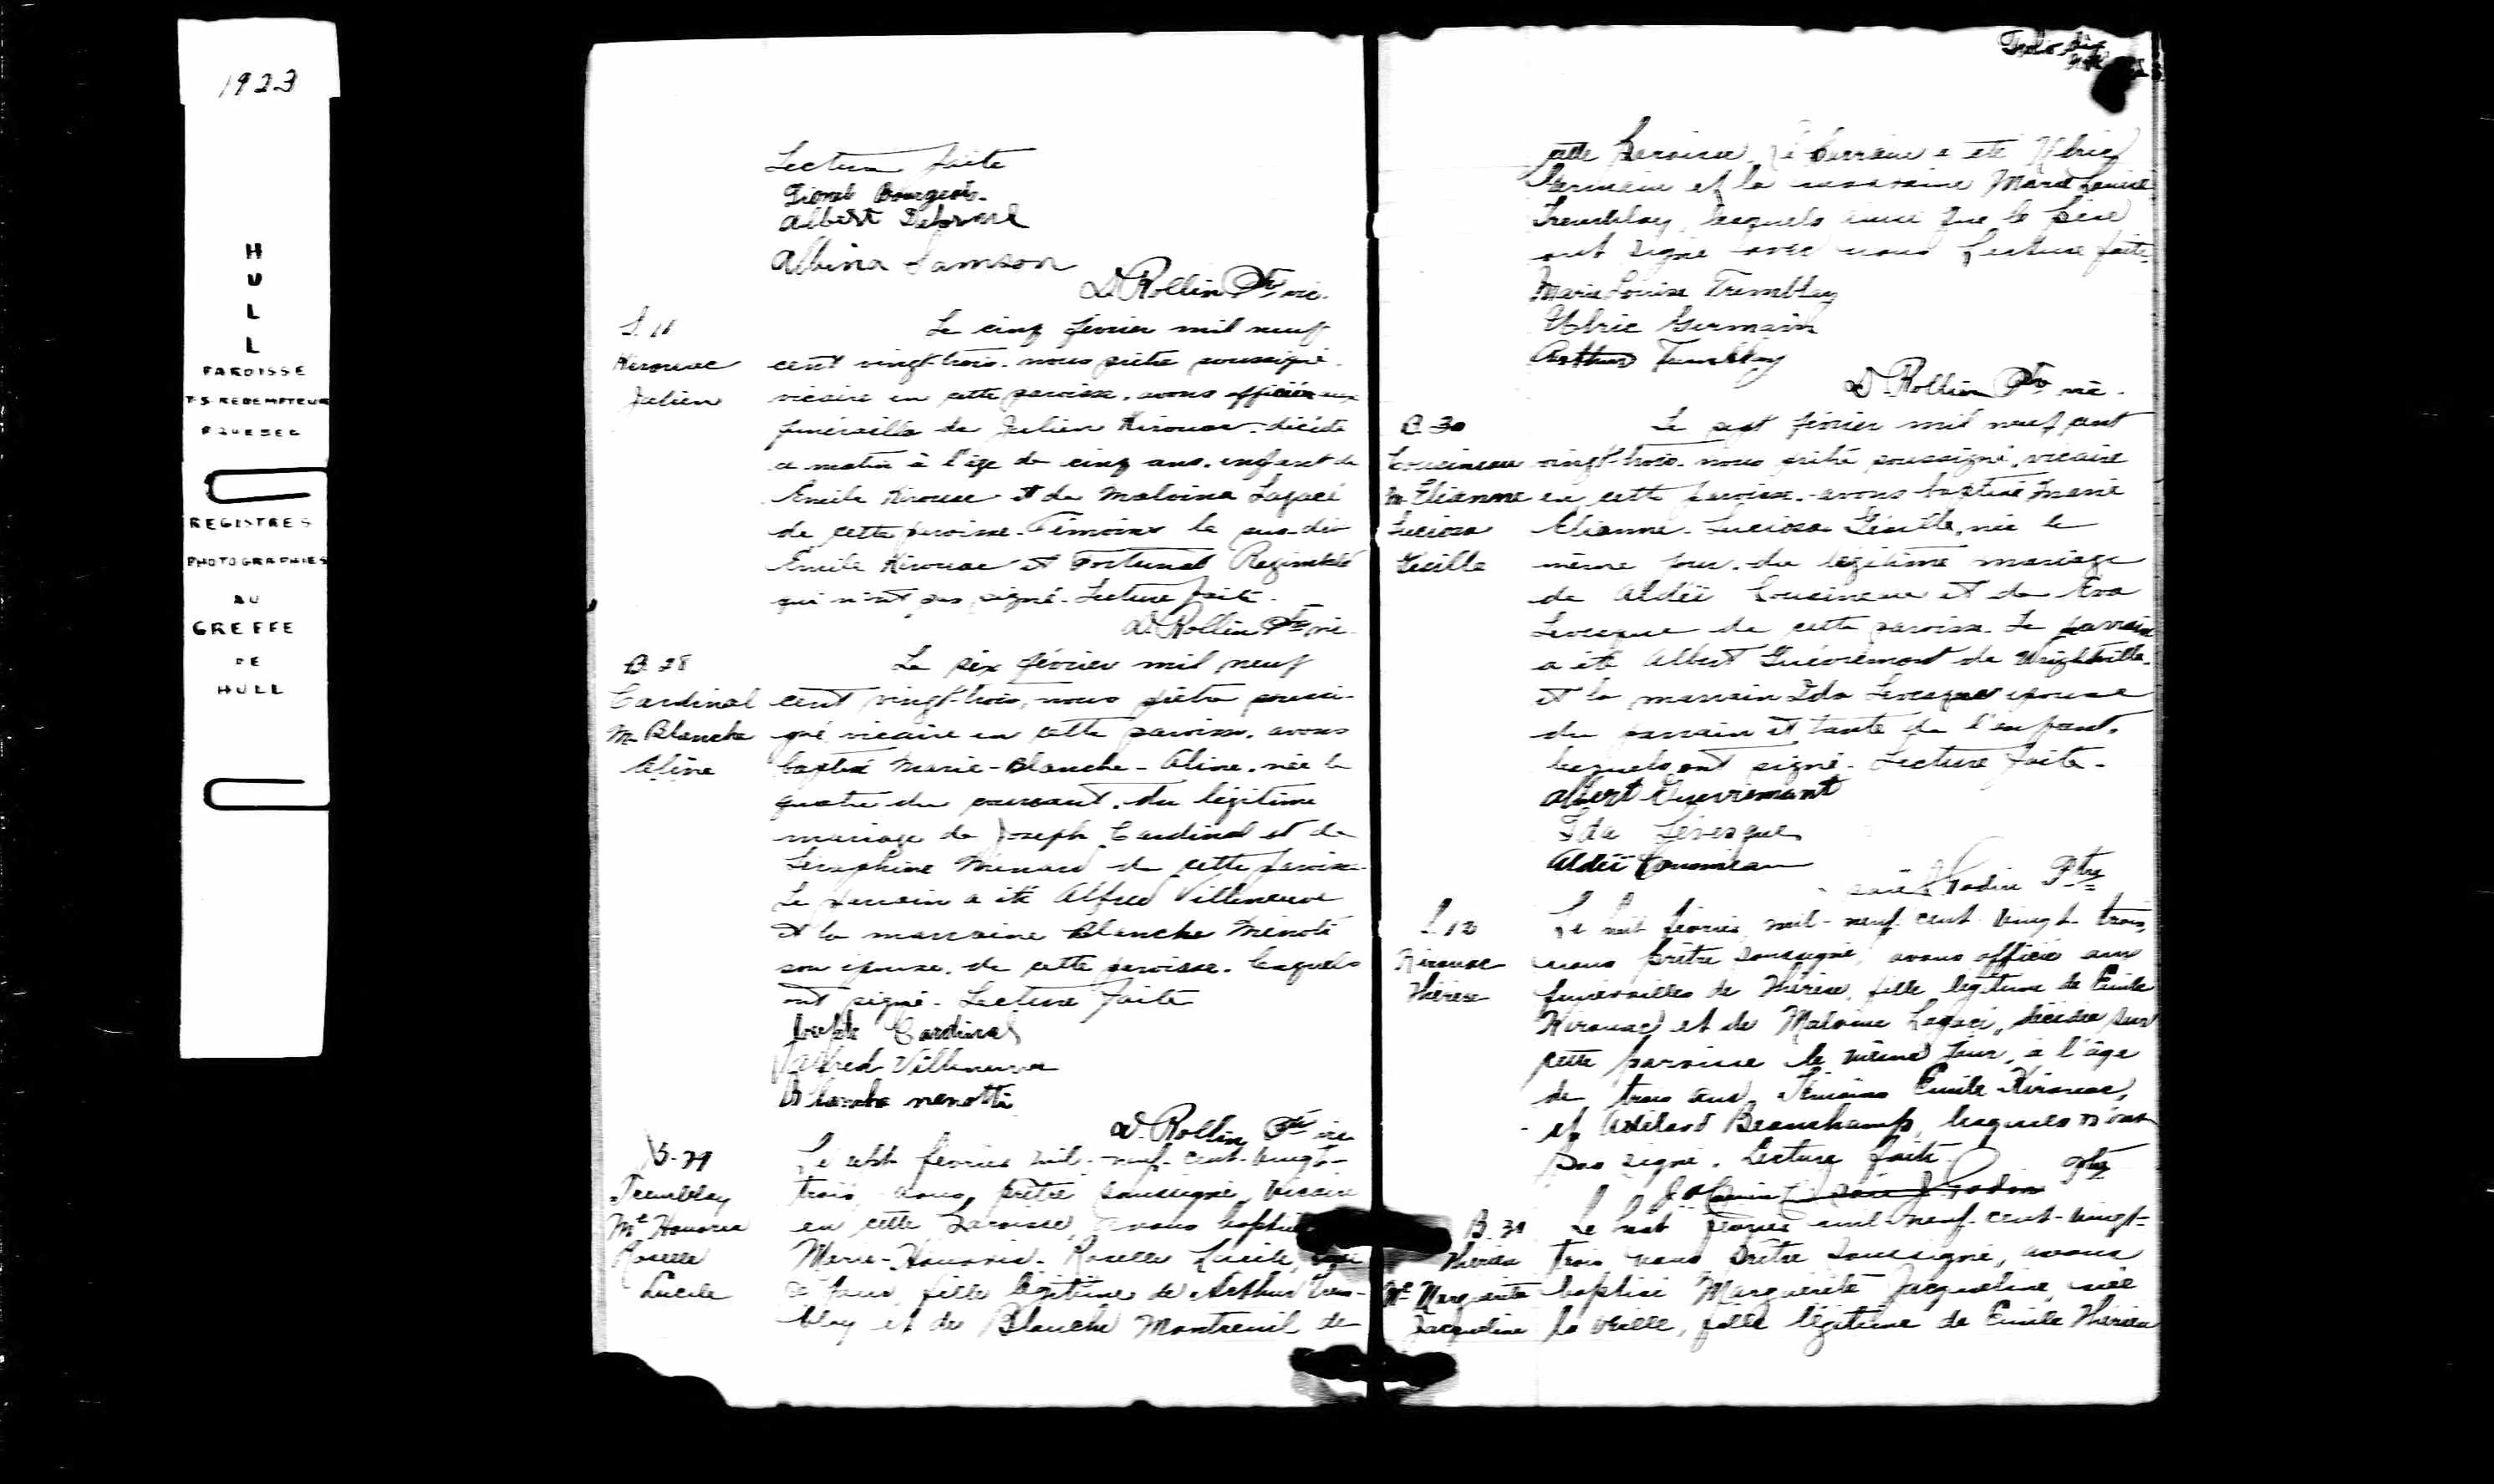 1923
H
U
L
L
PAROISSE
T-S REDEMPTEUR
P. QUEBEC
REGISTRES
PHOTOGRAPHIES
AU
GREFFE
DE
HULL
Lecture faite
Lionel Bourgeois.
Albert
Albina Samson
D. Rollin Ptre vic.
S. 11
Kirouac
Julien
Le cinq février mil neuf
cent vingt-trois. nous prêtre soussigné.
vicaire en cette paroisse. avons officié aux
funérailles de Julien Kirouac. décédé
ce matin à l'âge de cinq ans. enfant de
Emile Kirouac et de Malvina Lagacé
de cette paroisse. Témoins le sus-dit
Emile Kirouac et Fortunat Regimbald
qui n'ont pas signé. Lecture faite.
D. Rollin Ptre vic.
B. 28
Cardinal
M. Blanche
Aline
Le six février mil neuf
cent vingt-trois, nous prêtre soussi-
gné vicaire en cette paroisse. avons
baptisé Marie-Blanche-Aline. née le
quatre du courant. du légitime
mariage de Joseph Cardinal et de
Séraphine Ménard de cette paroisse.
Le parrain a été Alfred Villeneuve
et la marraine Blanche Menoti
son épouse. de cette paroisse. lesquels
ont signé. Lecture faite
Joseph Cardinal
Alfred Villeneuve
Blanche menotti
D. Rollin Ptre vic
B-29
Tremblay
Me Honoria
Roselle
Lucile
Le sept février mil-neuf-cent-vingt-
trois nous, prêtre soussigné, vicaire
en cette Paroisse, avons baptisé
Marie-Honoria-Roselle Lucile, née
ce jour, fille légitime de Arthur Trem-
blay et de Blanche Montreuil de
Folio dix
cette Paroisse. Le Parrain a été Ulric
Germain et la marraine Marie Louise
Tremblay, lesquels ainsi que le père
ont signé avec nous Lecture faite
Marie Louise Tremblay
Ulric Germain
Arthur Tremblay
D. Rollin Ptre vic.
B. 30
Cousineau
M. Elianne
Luciosa
Gisille
Le sept février mil neuf cent
vingt-trois. nous prêtre soussigné, vicaire
en cette paroisse. avons baptisé Marie
Elianne. Luciosa Gisille, née le
même jour. du légitime mariage
de Aldéi Cousineau et de Eva
Levesque de cette paroisse. Le parrain
a été Albert Guévremont de Wrightville.
et la marrain Ida Levesque épouse
du parrain et tante de l'enfant.
lesquels ont signé. Lecture faite.
Albert Guevremont
Ida Lévesque
Aldéi Cousineau
Godin Ptre
S. 12
Kirouac
Thérèse
Le huit février, mil-neuf-cent-vingt-trois,
nous Prêtre soussigné, avons officié aux
funérailles de Thérèse, fille légitime de Emile
Kirouac et de Malvina Lagacé, décédée sur
cette paroisse le même jour, à l'âge
de trois ans. Témoins Emile Kirouac,
et Adélard Beauchamp, lesquels n'ont
pas signé. Lecture faite.
Godin Ptre
B. 31
Thérien
Me Marguerite
Jacqueline
Le huit février mil-neuf-cent-vingt-
trois nous Prêtre soussigné, avons
baptisé Marguerite Jacqueline, née
la veille, fille légitime de Emile Thérien